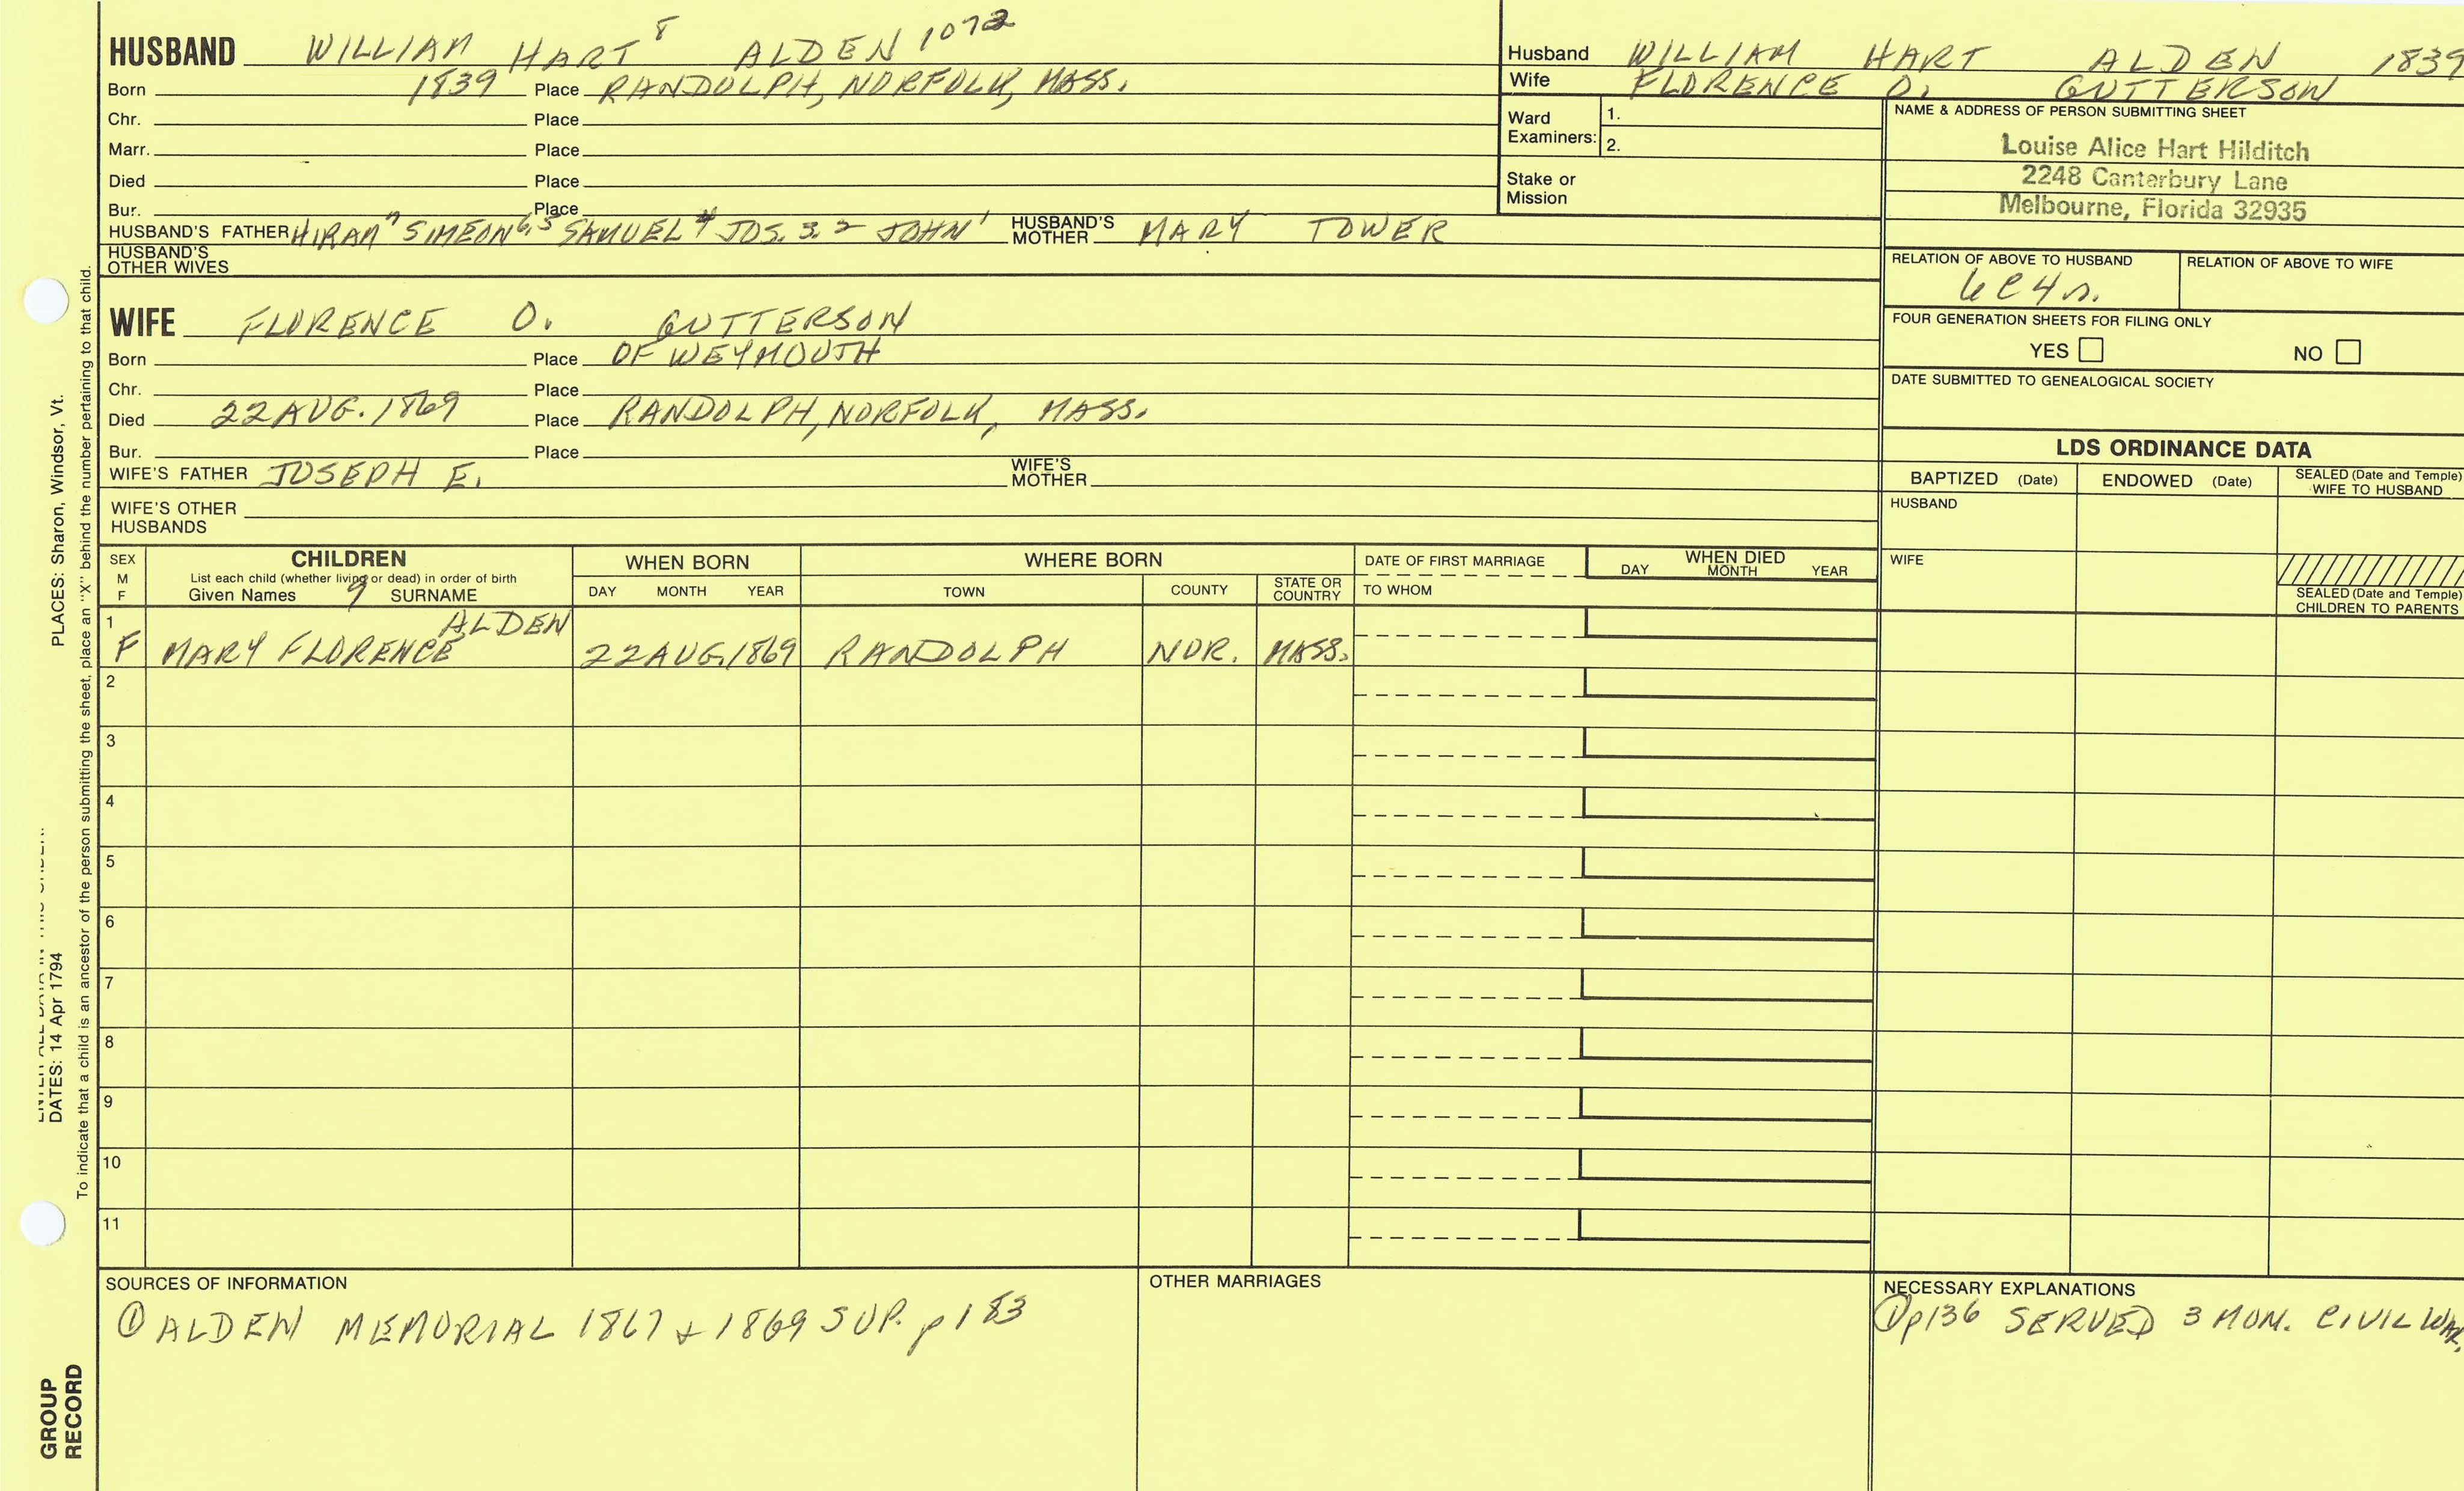 HUSBAND WILLIAM HART 8 ALDEN 1072
Born 1839 Place RANDOLPH, NORFOLK, MASS.
Chr. Place
Marr. Place
Died Place
Bur. Place
HUSBAND'S FATHER HIRAM 7 SIMEON 6,5 SAMUEL 4 JOS. 3. 2 JOHN 1 HUSBAND'S MOTHER MARY TOWER
HUSBAND'S OTHER WIVES
WIFE FLORENCE O. GUTTERSON
Born Place OF WEYMOUTH
Chr. Place
Died 22 AUG. 1869 Place RANDOLPH, NORFOLK, MASS.
Bur. Place
WIFE'S FATHER JOSEPH E. WIFE'S MOTHER
WIFE'S OTHER HUSBANDS
Husband WILLIAM HART ALDEN 1839
Wife FLORENCE O. GUTTERSON
Ward Examiners: 1.
2.
Stake or Mission
NAME & ADDRESS OF PERSON SUBMITTING SHEET
Louise Alice Hart Hilditch
2248 Canterbury Lane
Melbourne, Florida 32935
RELATION OF ABOVE TO HUSBAND RELATION OF ABOVE TO WIFE
6C4R.
FOUR GENERATION SHEETS FOR FILING ONLY
YES NO
DATE SUBMITTED TO GENEALOGICAL SOCIETY
LDS ORDINANCE DATA
BAPTIZED (Date) ENDOWED (Date) SEALED (Date and Temple) WIFE TO HUSBAND
HUSBAND
WIFE
SEALED (Date and Temple) CHILDREN TO PARENTS
SEX M F
CHILDREN
List each child (whether living or dead) in order of birth
Given Names 9 SURNAME
WHEN BORN
DAY MONTH YEAR
WHERE BORN
TOWN COUNTY STATE OR COUNTRY
DATE OF FIRST MARRIAGE
TO WHOM
WHEN DIED
DAY MONTH YEAR
1 F MARY FLORENCE ALDEN 22 AUG. 1869 RANDOLPH NOR. MASS.
2
3
4
5
6
7
8
9
10
11
SOURCES OF INFORMATION
① ALDEN MEMORIAL 1867 & 1869 SUP. p 183
OTHER MARRIAGES
NECESSARY EXPLANATIONS
① p136 SERVED 3 MON. CIVIL WAR.
PLACES: Sharon, Windsor, Vt.
DATES: 14 Apr 1794
To indicate that a child is an ancestor of the person submitting the sheet, place an "X" behind the number pertaining to that child.
GROUP
RECORD